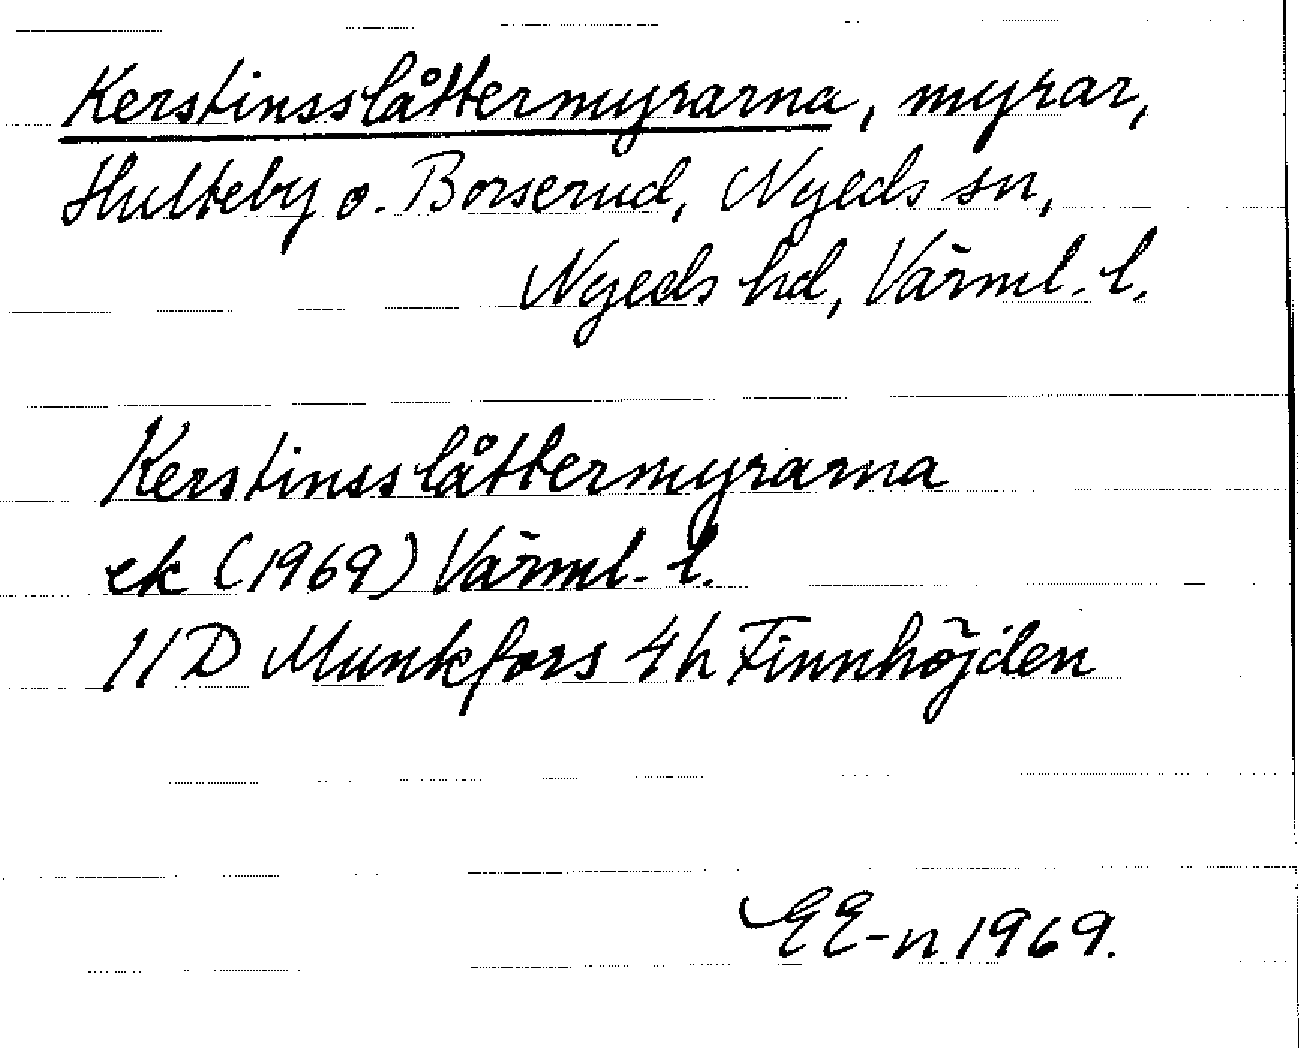 Kerstinsslåttermyrarna, myrar,
Hulteby o. Borserud, Nyeds sn,
Nyeds hd, Värml. l.
Kerstinsslåttermyrarna
ek (1969) Värml. l.
11D Munkfors 4h Finnhöjden
EE-n 1969.